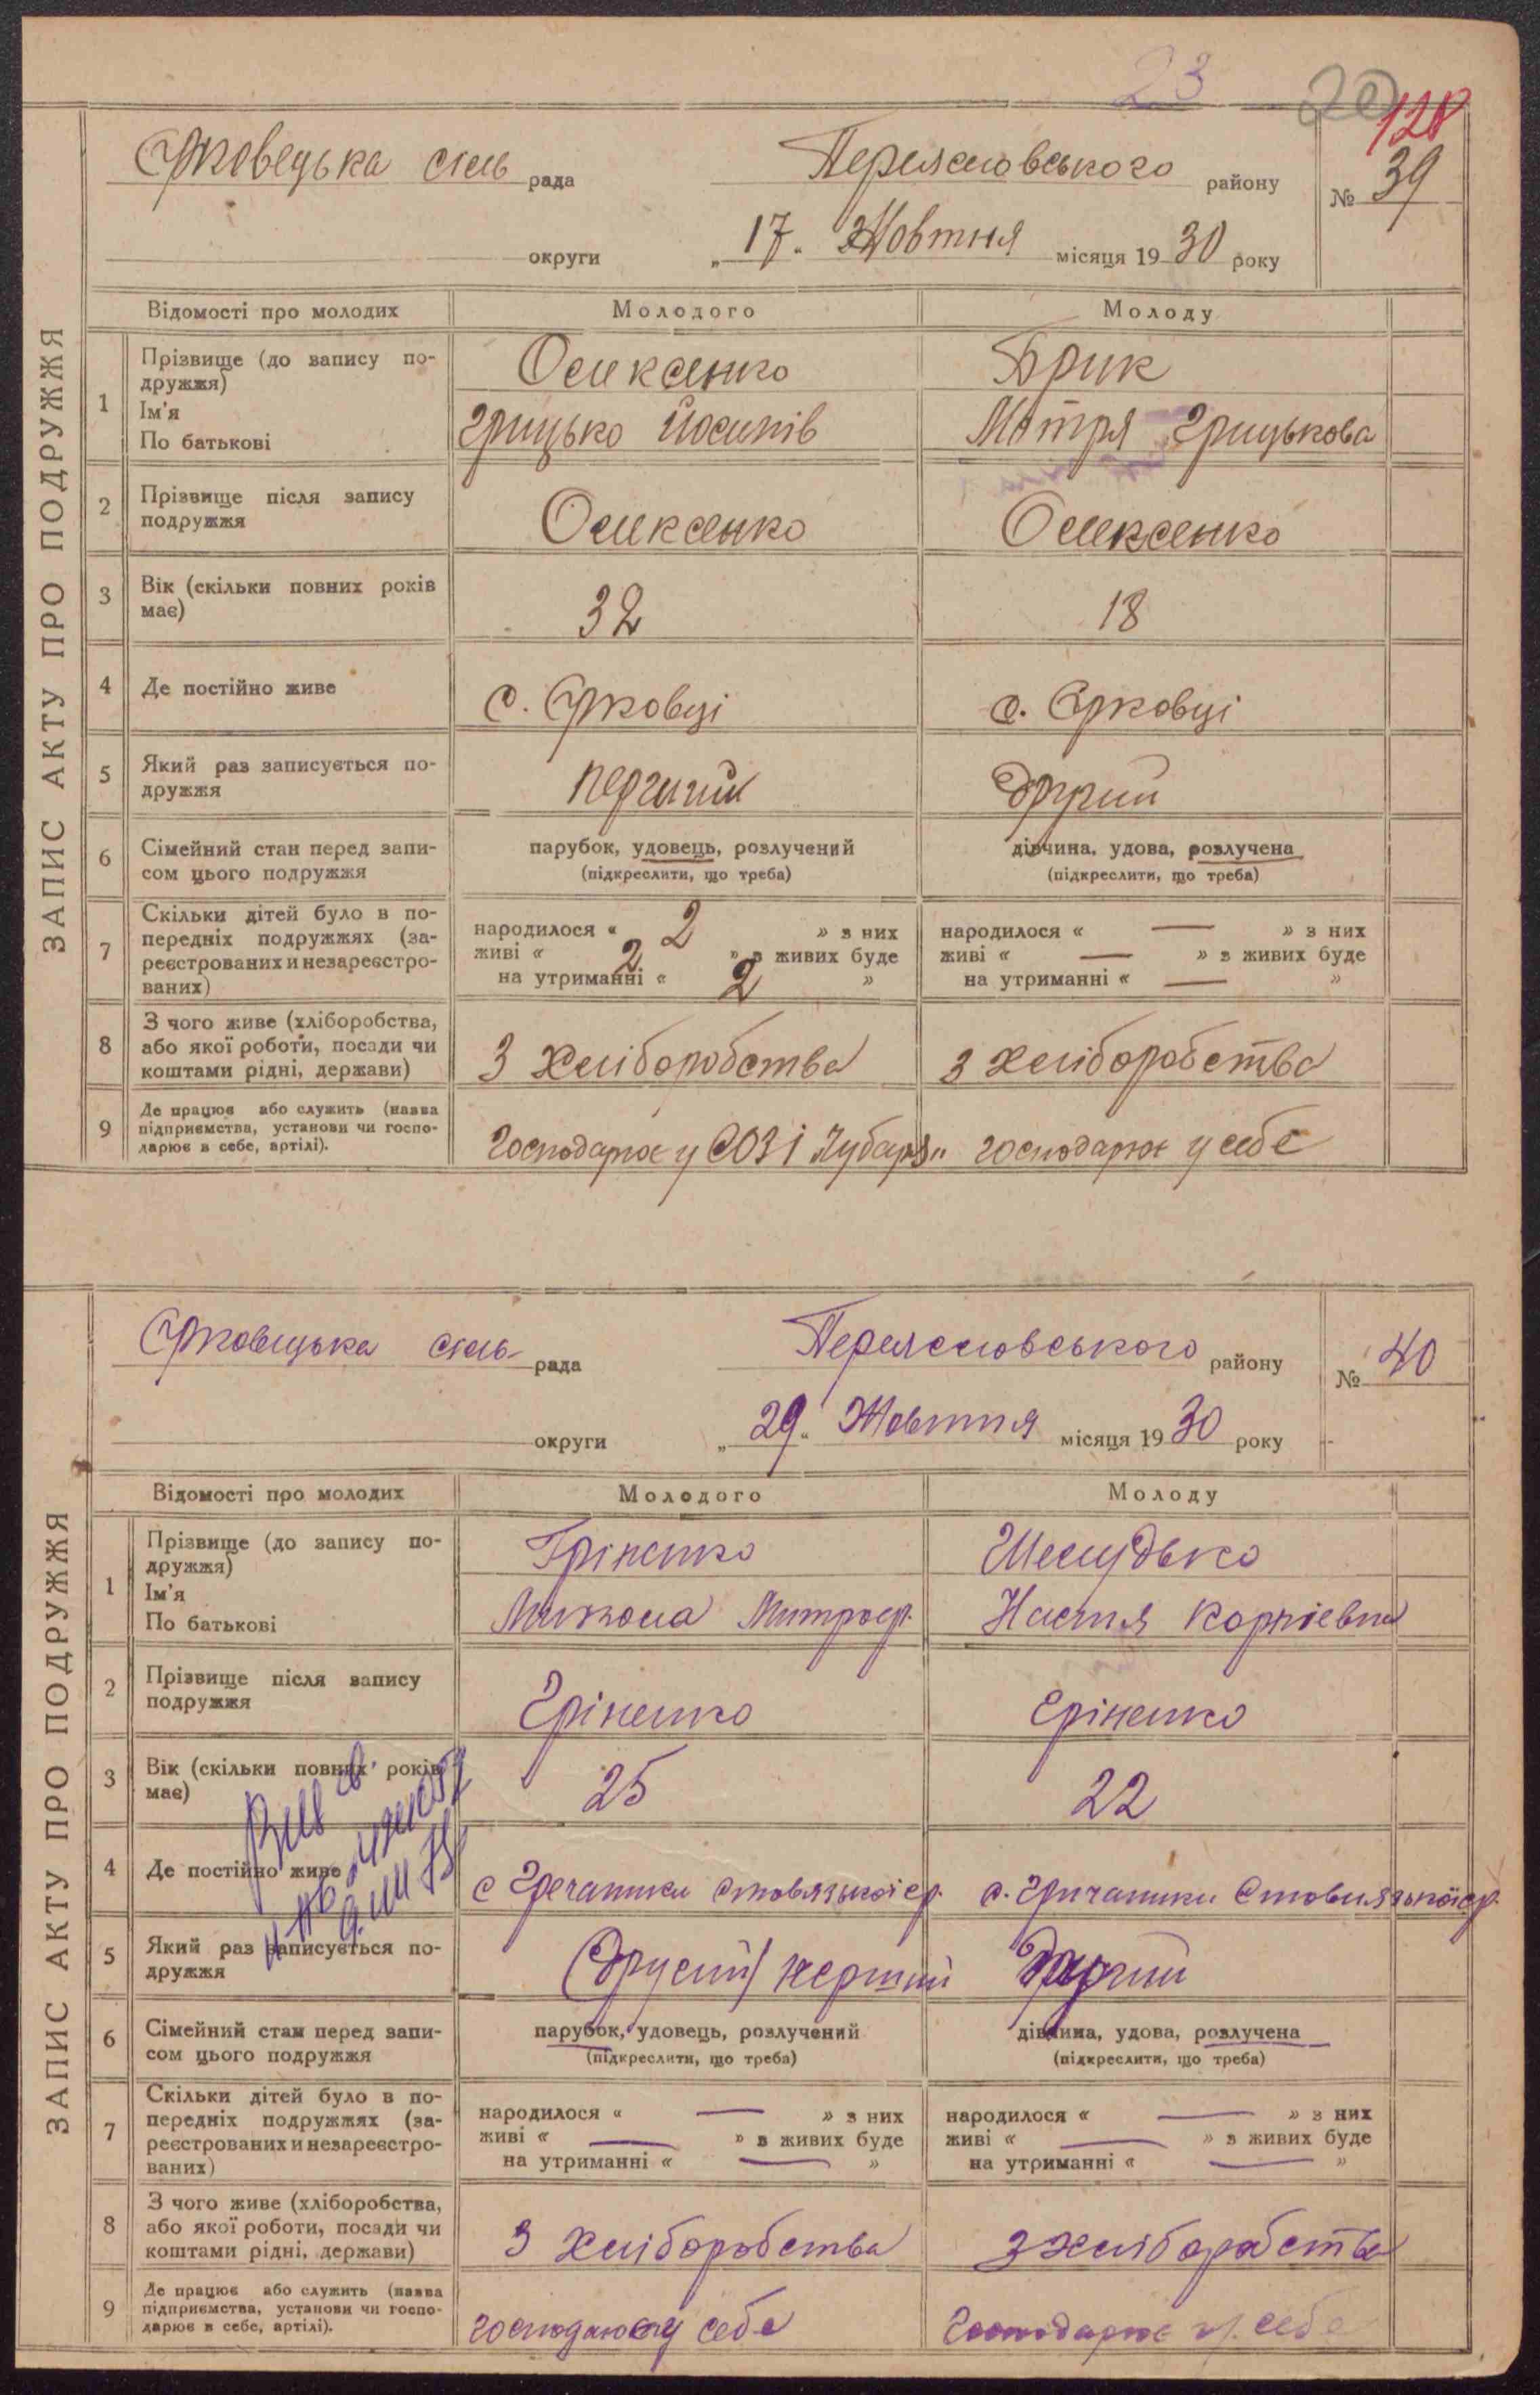 23 20 128
Єрковецька сіль рада Переяславського району № 39
округи „17" Жовтня місяця 1930 року
ЗАПИС АКТУ ПРО ПОДРУЖЖЯ
Відомості про молодих Молодого Молоду
1 Прізвище (до запису по-
дружжя)
Ім'я
По батькові
Олексенко Брик
Грицько Йосипів Мотря Грицькова
2 Прізвище після запису
подружжя
Олексенко Олексенко
3 Вік (скільки повних років
має)
32 18
4 Де постійно живе
с. Єрковці с. Єрковці
5 Який раз записується по-
дружжя
перший другий
6 Сімейний стан перед запи-
сом цього подружжя
парубок, удовець, розлучений дівчина, удова, розлучена
(підкреслити, що треба) (підкреслити, що треба)
7 Скільки дітей було в по-
передніх подружжях (за-
реєстрованих и незареєстро-
ваних)
народилося « 2 » з них народилося « — » з них
живі « 2 » з живих буде живі « — » з живих буде
на утриманні « 2 » на утриманні « — »
8 З чого живе (хліборобства,
або якої роботи, посади чи
коштами рідні, держави)
З хліборобства з хліборобства
9 Де працює або служить (назва
підприємства, установи чи госпо-
дарює в себе, артілі).
господарює у СОЗі Чубаря" господарює у себе
Єрковецька сіль- рада Переяславського району № 40
округи „29" Жовтня місяця 1930 року
ЗАПИС АКТУ ПРО ПОДРУЖЖЯ
Відомості про молодих Молодого Молоду
1 Прізвище (до запису по-
дружжя)
Ім'я
По батькові
Гріненко Шелудько
Микола Митроф. Настя Корнієвна
2 Прізвище після запису
подружжя
Гріненко Гріненко
3 Вік (скільки повних років
має)
25 22
4 Де постійно живе
с Гречаники Стовязької ср. с. Гричаники Стовпязької ср.
5 Який раз записується по-
дружжя
(другий) перший другий
6 Сімейний стан перед запи-
сом цього подружжя
парубок, удовець, розлучений дівчина, удова, розлучена
(підкреслити, що треба) (підкреслити, що треба)
7 Скільки дітей було в по-
передніх подружжях (за-
реєстрованих и незареєстро-
ваних)
народилося « — » з них народилося « — » з них
живі « — » з живих буде живі « — » з живих буде
на утриманні « — » на утриманні « — »
8 З чого живе (хліборобства,
або якої роботи, посади чи
коштами рідні, держави)
З хліборобства з хліборобства
9 Де працює або служить (назва
підприємства, установи чи госпо-
дарює в себе, артілі).
у себе Господарює у себе